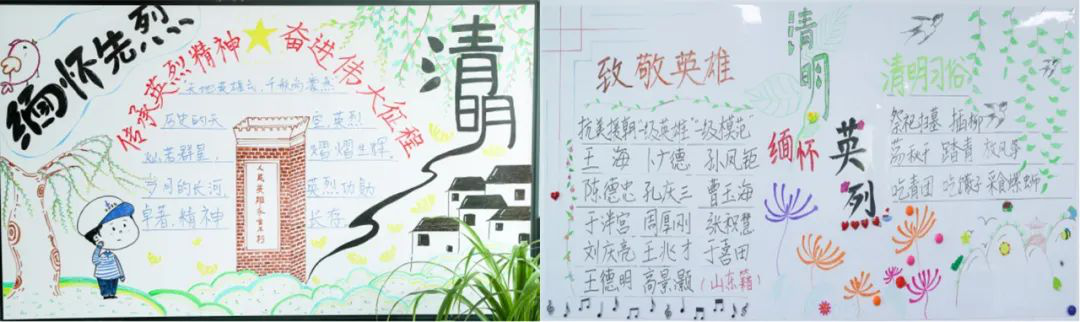 缅怀先烈
传承英烈精神
奋进伟大征程
清明
天地英雄气，千秋尚凛然
历史的天空，英烈
如若群星，熠熠生辉，
岁月的长河，英烈功勋
卓著，精神长存
人民英雄永垂不朽
致敬英雄
抗美援朝“一级英雄”“一级模范”
王海 孙凤钜
陈德忠 孔庆三 曹玉海
于泮宫 周厚刚 张积慧
刘庆亮 王兆才 于喜田
王德明 高景灏（山东籍）
清明
缅怀
英列
清明习俗
祭祀扫墓 插柳
荡秋千 踏青 放风筝
吃青团 吃馓子 采食螺蛳